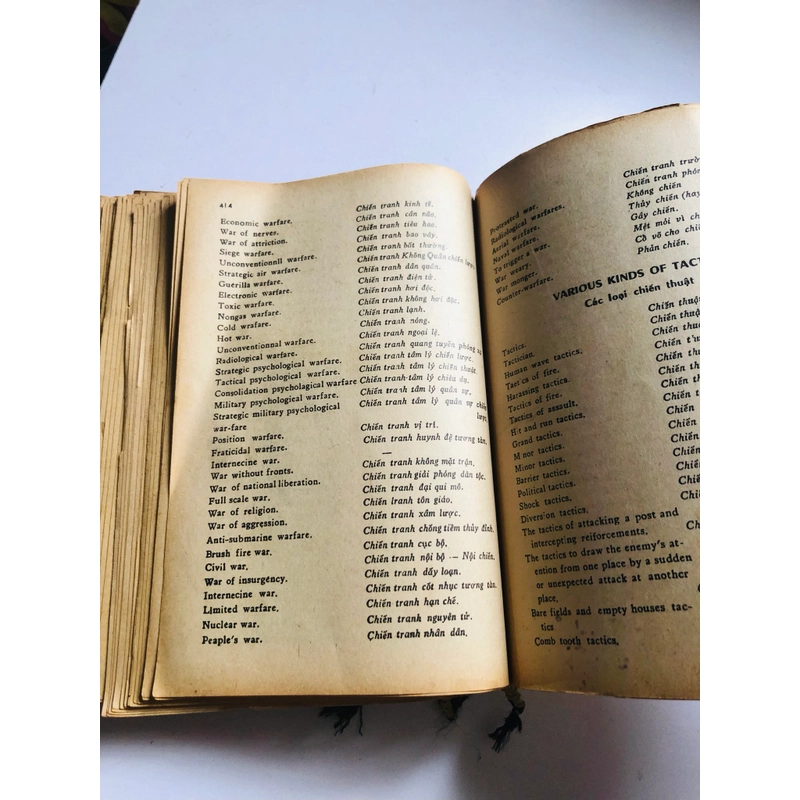 414
Economic warfare. Chiến tranh kinh tế.
War of nerves. Chiến tranh cân não.
War of attriction. Chiến tranh tiêu hao.
Siege warfare. Chiến tranh bao vây.
Unconventionnll warfare. Chiến tranh bất thường.
Strategic air warfare. Chiến tranh Không Quân chiến lược.
Guerilla warfare. Chiến tranh dân quân.
Electronic warfare. Chiến tranh điện tử.
Toxic warfare. Chiến tranh hơi độc.
Nongas warfare. Chiến tranh không hơi độc.
Cold wrafare. Chiến tranh lạnh.
Hot war. Chiến tranh nóng.
Unconventionnal warfare. Chiến tranh ngoại lệ.
Radiological warfare. Chiến tranh quang tuyến phóng xạ
Strategic psychological warfare. Chiến tranh tâm lý chiến lược.
Tactical psychological warfare. Chiến tranh tâm lý chiến thuật.
Consolidation psychalogical warfare Chiến tranh tâm lý chiêu dụ.
Military psychological warfare. Chiến tranh tâm lý quân sự.
Strategic military psychological Chiến tranh tâm lý quân sự chiến
war-fare lược
Position warfare. Chiến tranh vị trí.
Fraticidal warfare. Chiến tranh huynh đệ tương tàn.
Internecine war. —
War without fronts. Chiến tranh không mặt trận.
War of national liberation. Chiến tranh giải phóng dân tộc.
Full scale war. Chiến tranh đại qui mô.
War of religion. Chiến tranh tôn giáo.
War of aggression. Chiến tranh xâm lược.
Anti-submarine warfare. Chiến tranh chống tiềm thủy đỉnh.
Brush fire war. Chiến tranh cục bộ.
Civil war. Chiến tranh nội bộ — Nội chiến.
War of insurgency. Chiến tranh dấy loạn.
Internecine war. Chiến tranh cốt nhục tương tàn.
Limited warfare. Chiến tranh hạn chế.
Nuclear war. Chiến tranh nguyên tử.
Peaple's war. Chiến tranh nhân dân.
Protracted war. Chiến tranh trườ
Radiological warfares. Chiến tranh phón
Aerial warfare. Không chiến
Naval warfare. Thủy chiến (hay
To trigger a war. Gây chiến.
War weary. Mệt mỏi vì ch
War monger. Cò võ cho chiế
Counter-warfare. Phản chiến.
VARIOUS KINDS OF TACT
Các loại chiến thuật
Tactics. Chiến thuật
Tactician. Chiến thuậ
Human wave tactics. Chiến thuậ
Tactics of fire. Chiến t
Harassing tactics. Chiến thu
Tactics of fire. Chiến th
Tactics of assault. Chiến th
Hit and run tactics. Chiến
Grand tactics. Chiến
Minor tactics. Chiến
Minor tactics. Chiến
Barrier tactics. Chiến
Political tactics. Chiến
Shock tactics. Chiến
Diversion tactics. Chiến
The tactics of attacking a post and Ch
intercepting reiforcements.
The tactics to draw the enemy's at-
tention from one place by a sudden
or unexpected attack at another
place.
Bare fields and empty houses tac-
tics
Comb tooth tactics,